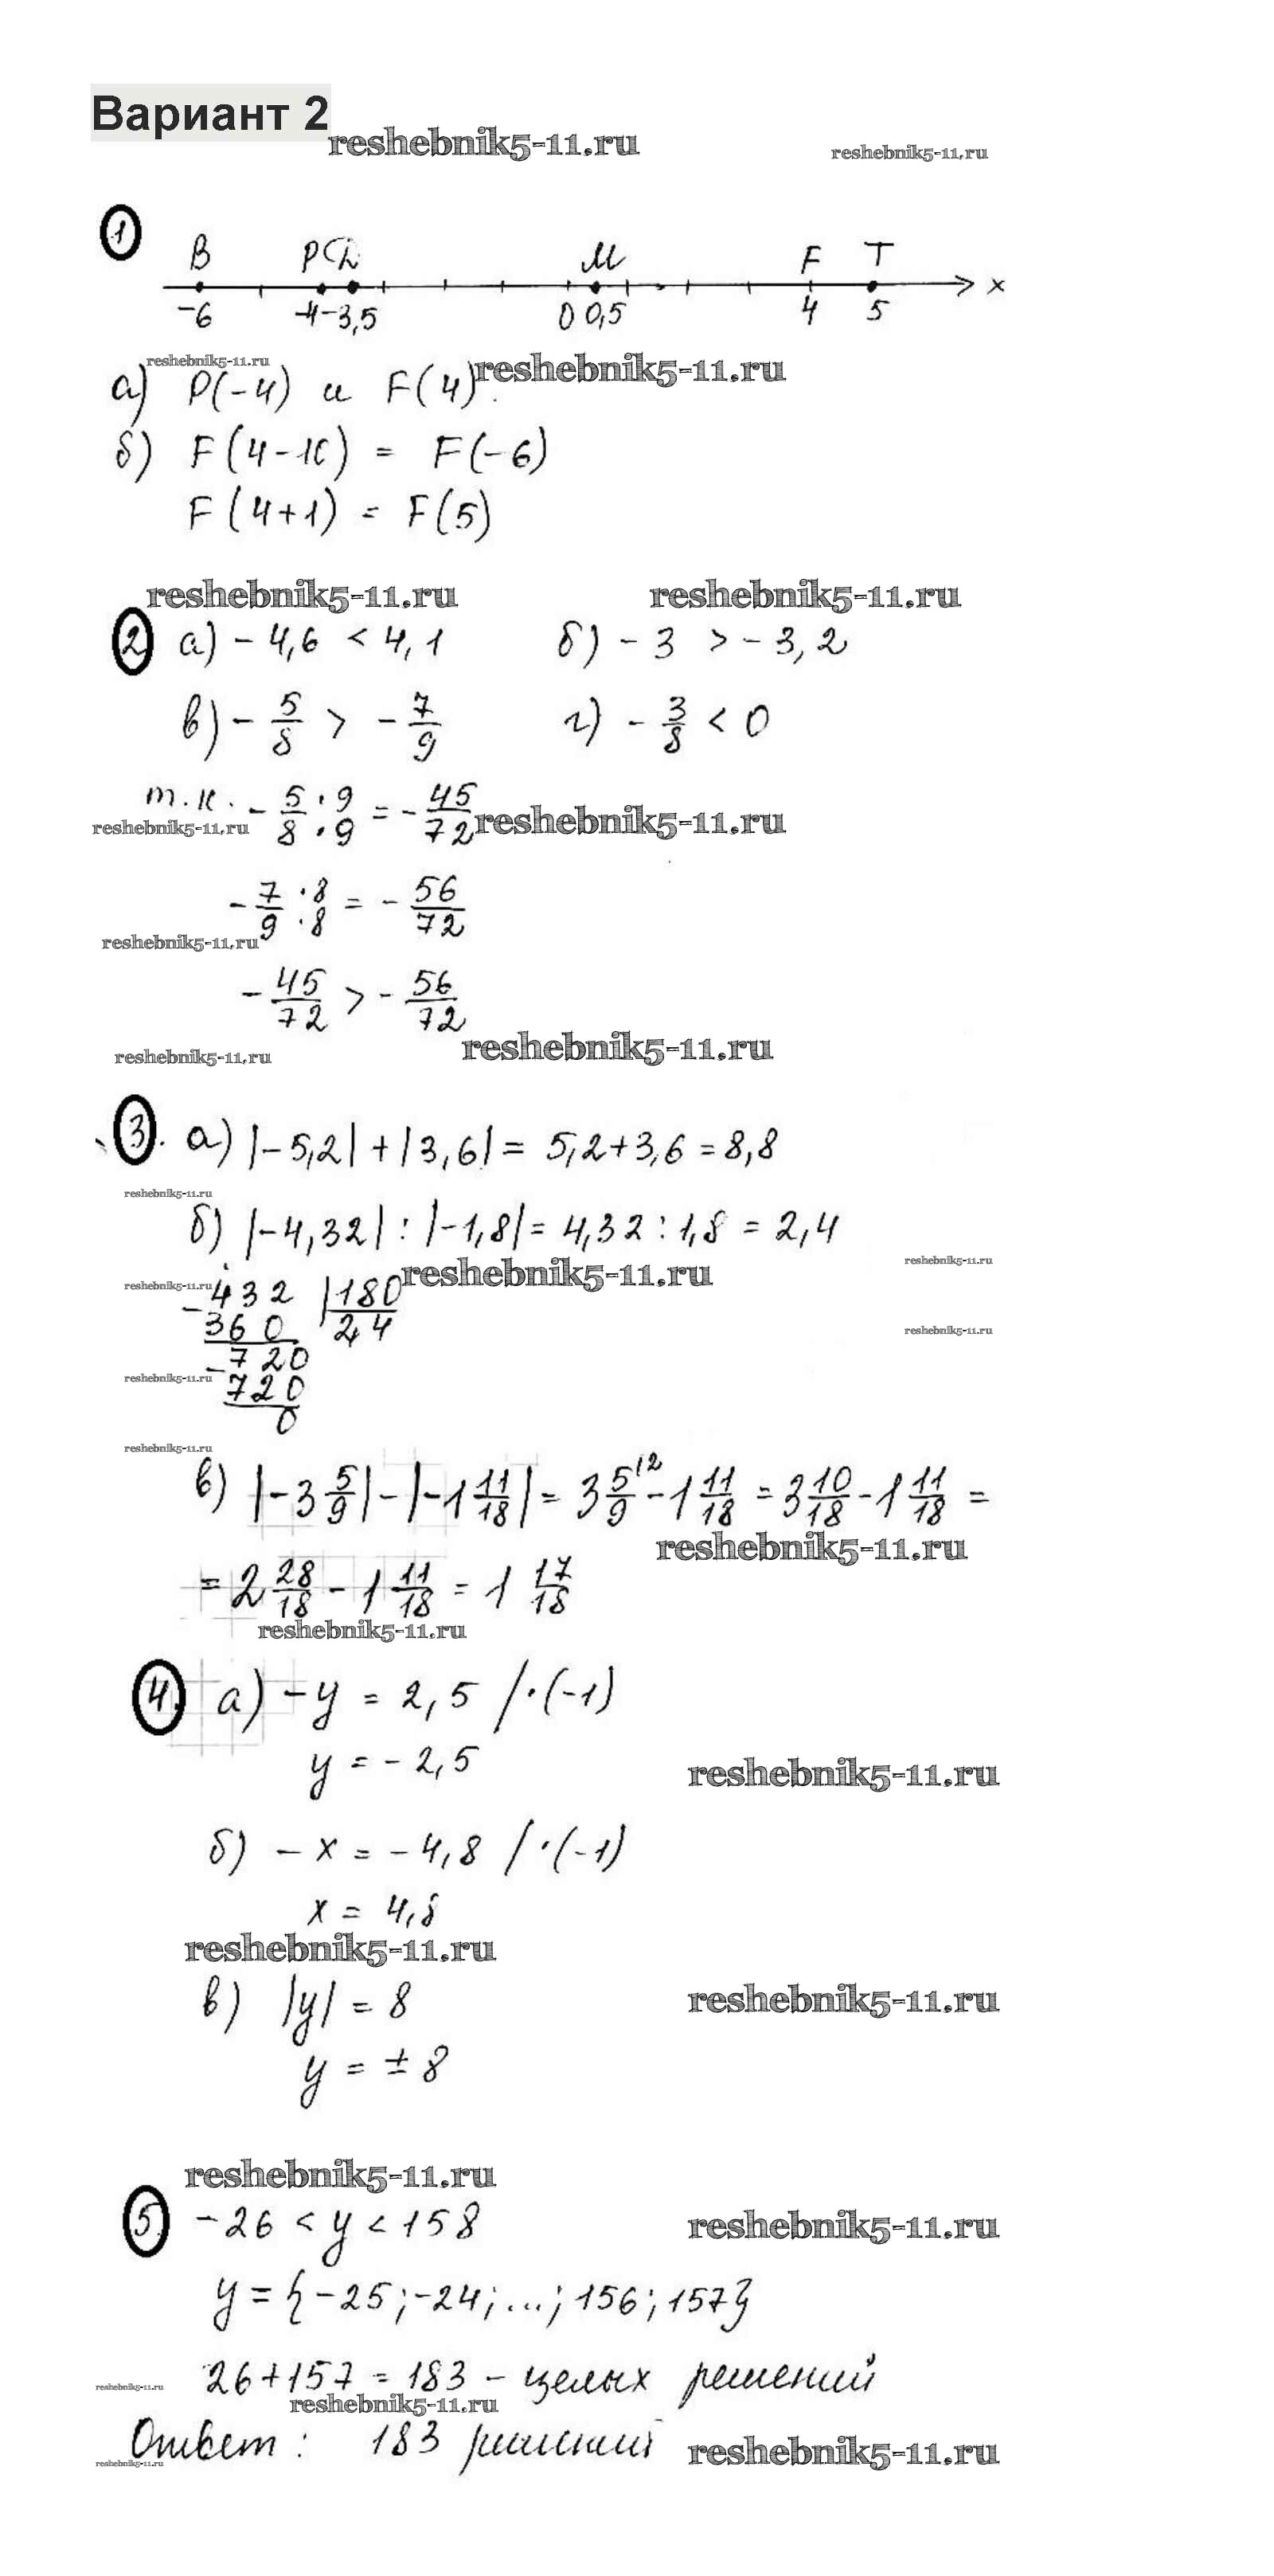 Вариант 2
reshebnik5-11.ru
reshebnik5-11.ru
1
B P C M F T
-6 -4 -3,5 0 0,5 4 5 x
reshebnik5-11.ru
reshebnik5-11.ru
а) P(-4) и F(4).
б) F(4-10) = F(-6)
F(4+1) = F(5)
reshebnik5-11.ru reshebnik5-11.ru
2 а) -4,6 < 4,1 б) -3 > -3,2
в) -5/8 > -7/9 г) -3/8 < 0
т.к. -5·9/8·9 = -45/72
reshebnik5-11.ru reshebnik5-11.ru
-7·8/9·8 = -56/72
reshebnik5-11.ru
-45/72 > -56/72
reshebnik5-11.ru reshebnik5-11.ru
3. а) |-5,2| + |3,6| = 5,2+3,6 = 8,8
reshebnik5-11.ru
б) |-4,32| : |-1,8| = 4,32 : 1,8 = 2,4
reshebnik5-11.ru reshebnik5-11.ru
reshebnik5-11.ru
-432 |180
360 2,4
reshebnik5-11.ru
-720
reshebnik5-11.ru
720
0
reshebnik5-11.ru
в) |-3 5/9| - |-1 11/18| = 3 5/9 \2 - 1 11/18 = 3 10/18 - 1 11/18 =
reshebnik5-11.ru
= 2 28/18 - 1 11/18 = 1 17/18
reshebnik5-11.ru
4. а) -y = 2,5 /·(-1)
y = -2,5
reshebnik5-11.ru
б) -x = -4,8 /·(-1)
x = 4,8
reshebnik5-11.ru
в) |y| = 8
reshebnik5-11.ru
y = ± 8
reshebnik5-11.ru
5. -26 < y < 158
reshebnik5-11.ru
y = {-25; -24; ...; 156; 157}
26+157 = 183 - целых решений
reshebnik5-11.ru reshebnik5-11.ru
Ответ: 183 решений
reshebnik5-11.ru reshebnik5-11.ru